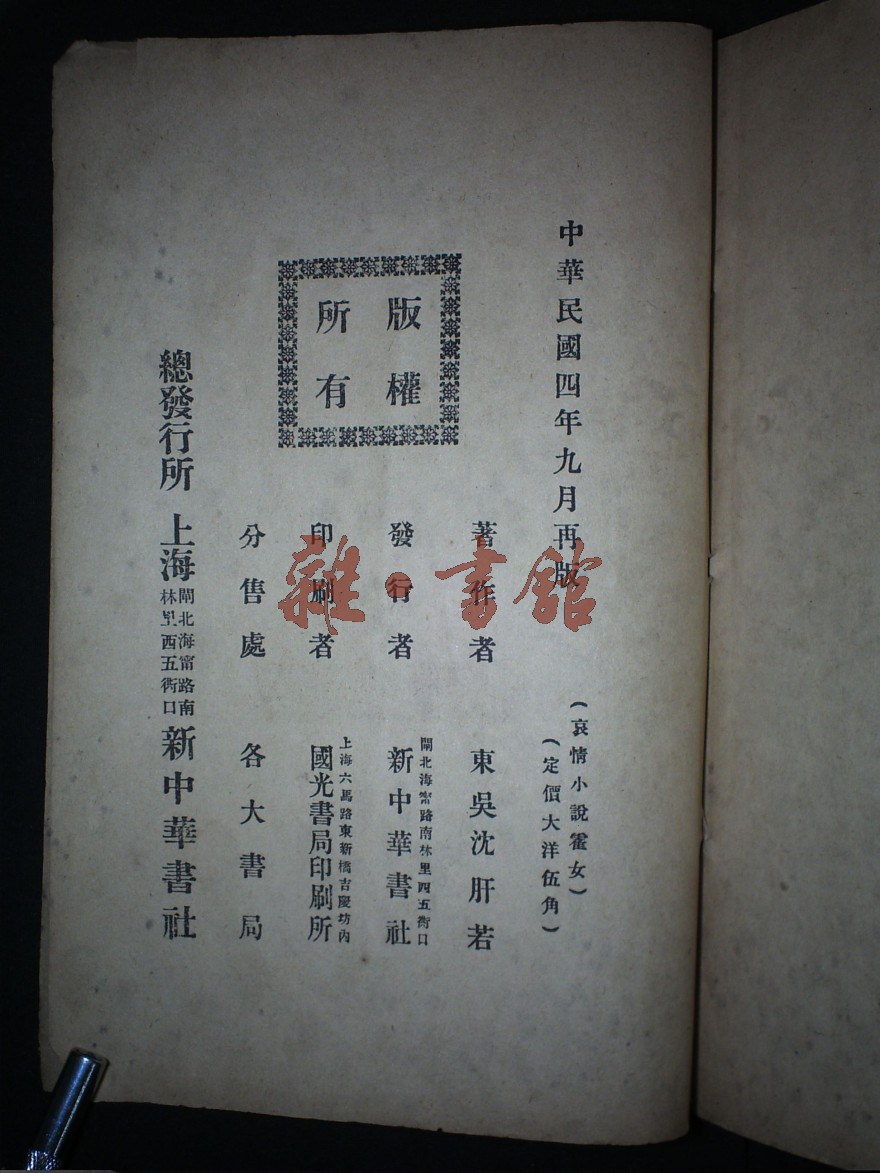 中華民國四年九月再版
(哀情小說霍女)
(定價大洋伍角)
版權
所有
著作者 東吳沈肝若
發行者 新中華書社
閘北海甯路南林里四五衖口
印刷者 國光書局印刷所
上海六馬路東新橋吉慶坊內
分售處 各大書局
總發行所 上海
閘北海甯路南
林里西五衖口
新中華書社
雜·書館